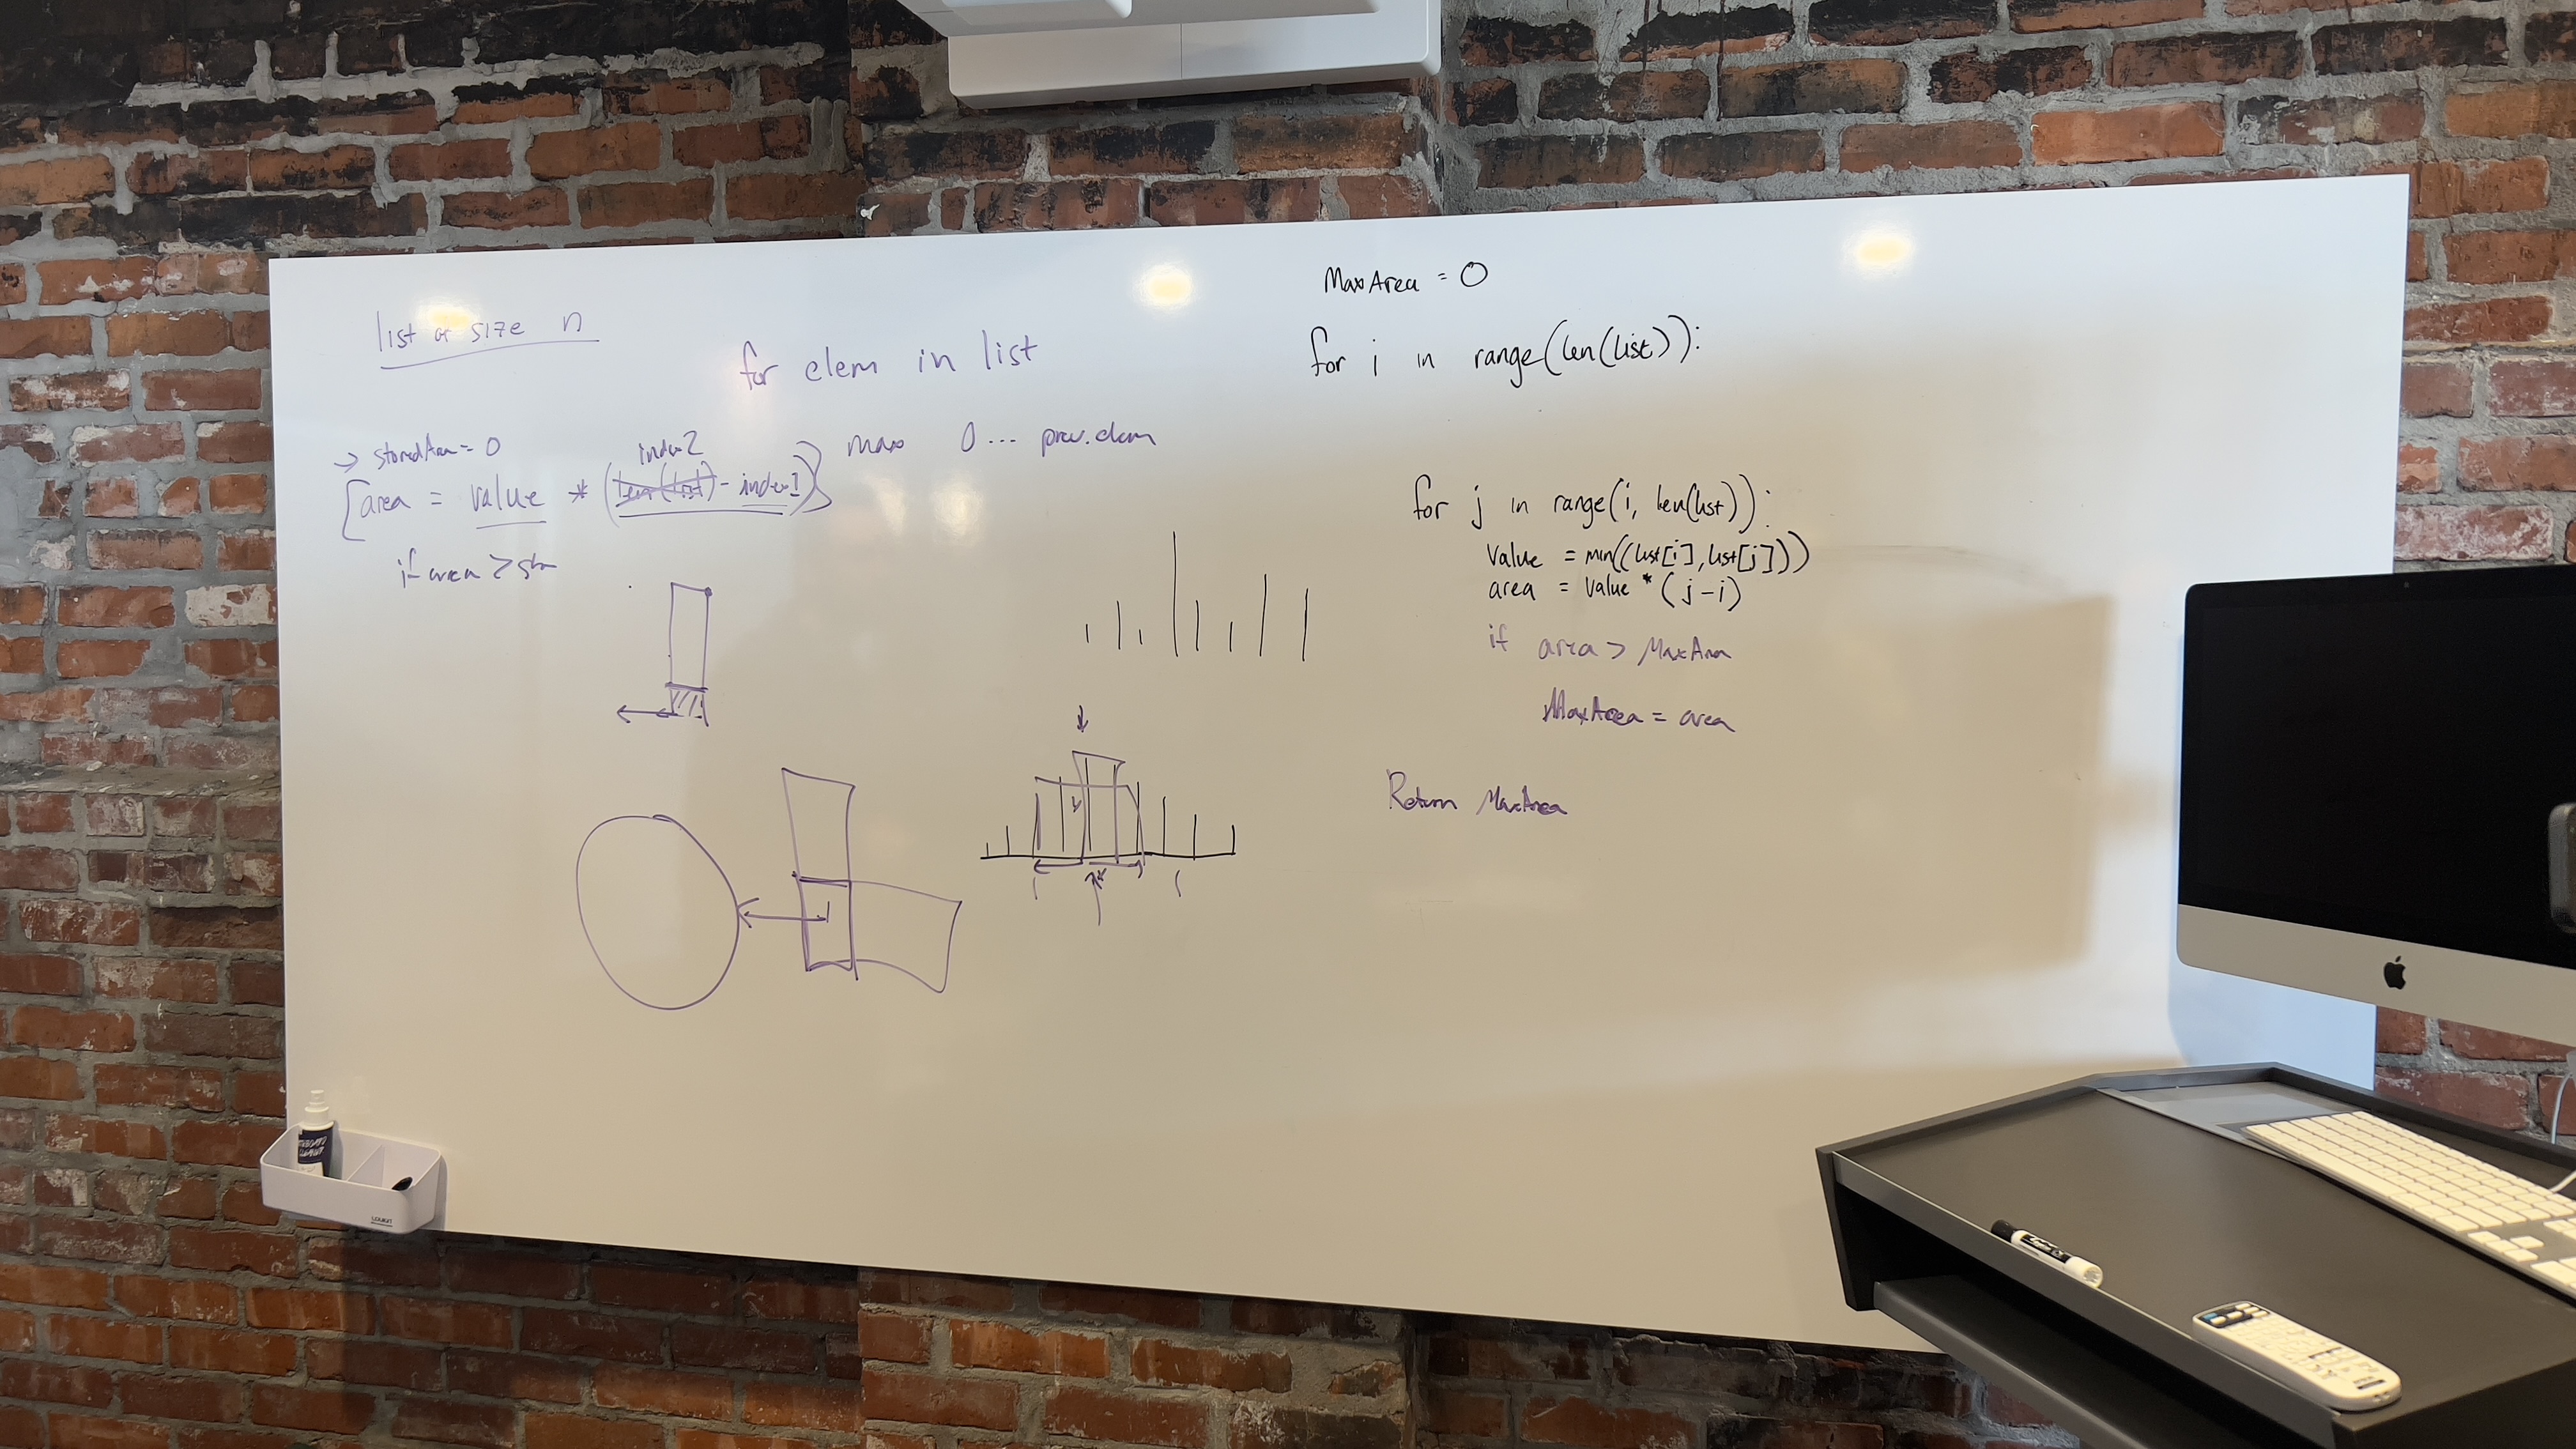 list of size n
for elem in list
→ storedArea = 0
index2
[area = value * (len(list) - index1)} max 0... prev. elem
if area >
MaxArea = 0
for i in range(len(list)):
for j in range(i, len(list)):
value = min((list[i], list[j]))
area = value * (j-i)
if area > MaxArea
MaxArea = area
Return MaxArea